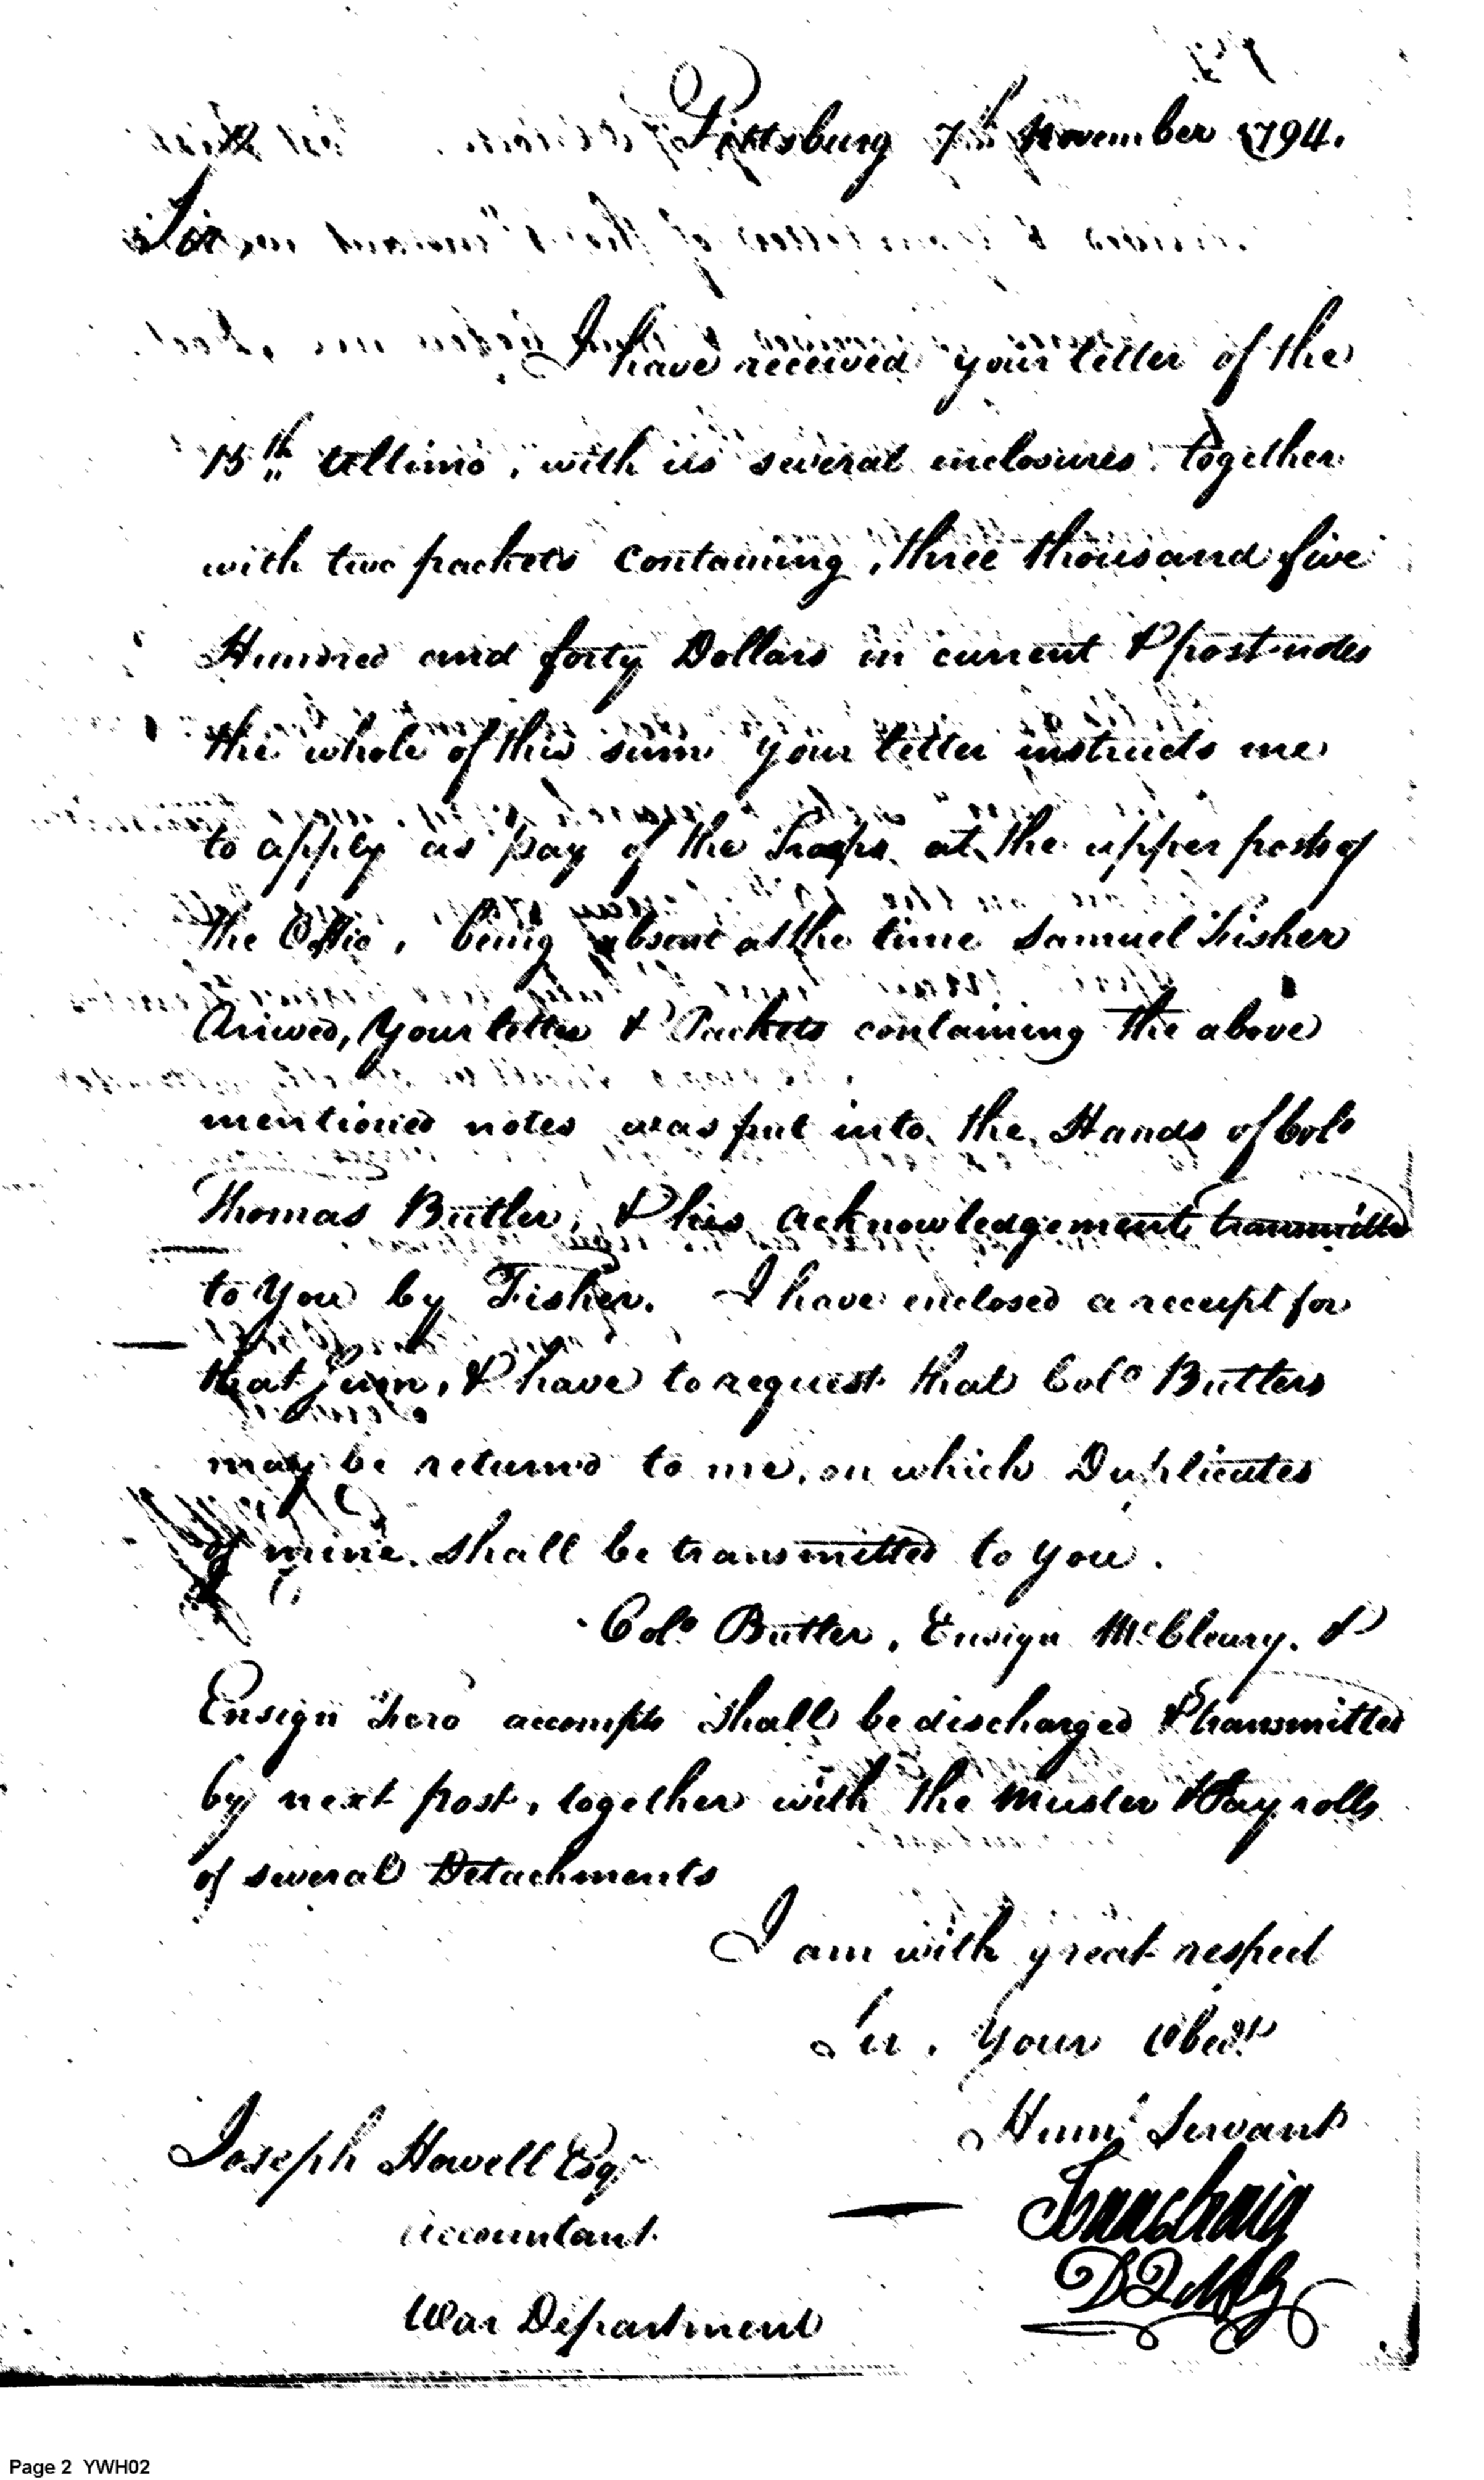 Pittsburg 7th November 1794.
Sir,
I have received your letter of the
15th Ultimo, with its several enclosures together
with two packets Containing, three thousand five
Hundred and forty Dollars in current & post notes
the whole of this sum your letter instructs me
to apply as pay of the Troops at the upper posts of
the Ohio, being absent at the time Samuel Fisher
Arived, Your letter & Packets containing the above
mentioned notes was put into the Hands of Colo
Thomas Butler, & his acknowledgement transmitted
to You by Fisher. I have enclosed a receipt for
that Sum, & have to request that Colo Butlers
may be returnd to me, on which Duplicates
of mine shall be transmitted to you.
Colo Butler, Ensign McCleary, &
Ensign accompts shall be discharged & transmitted
by next post, together with the Muster & Pay rolls
of several Detachments
I am with great respect
Sir, Your Obedt
Huml Servant
Isaac Craig
DQMG
Joseph Howell Esqr
Accountant
War Department
Page 2 YWH02